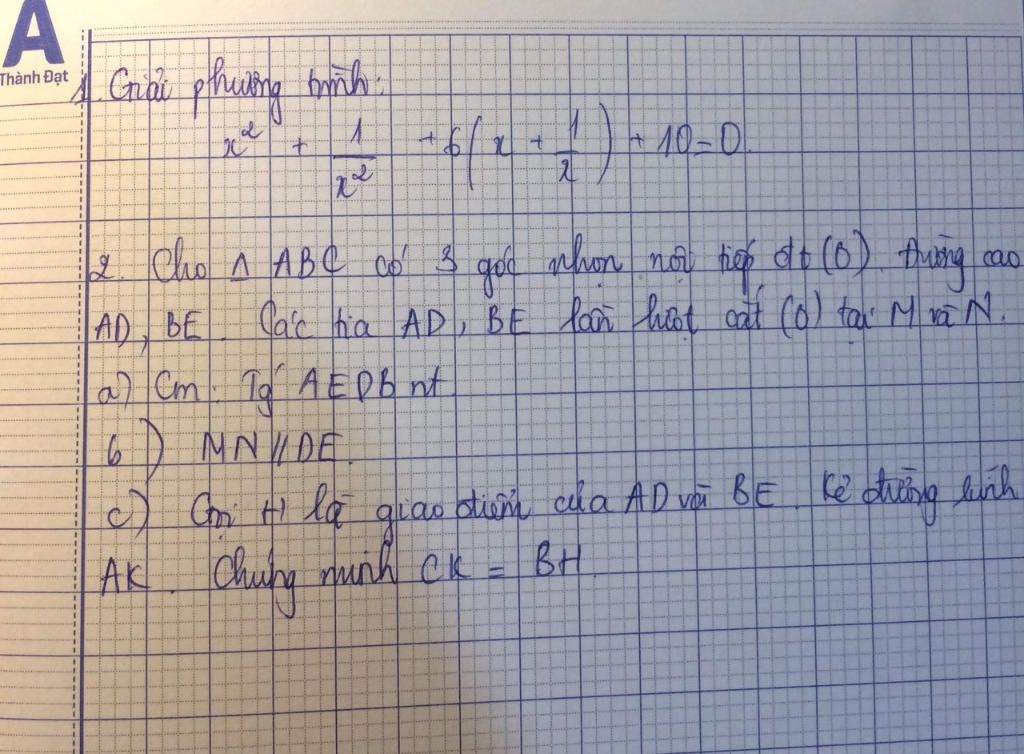 A
Thành Đạt
1. Giải phương trình:
x² + 1/x² + 6(x + 1/x) + 10 = 0.
2. Cho Δ ABC có 3 góc nhọn nội tiếp đt (O). Đường cao
AD, BE. Các tia AD, BE lần lượt cắt (O) tại M và N.
a) Cm: Tg AEDB nt.
b) MN // DE.
c) Gọi H là giao điểm của AD và BE. Kẻ đường kính
AK. Chứng minh CK = BH.